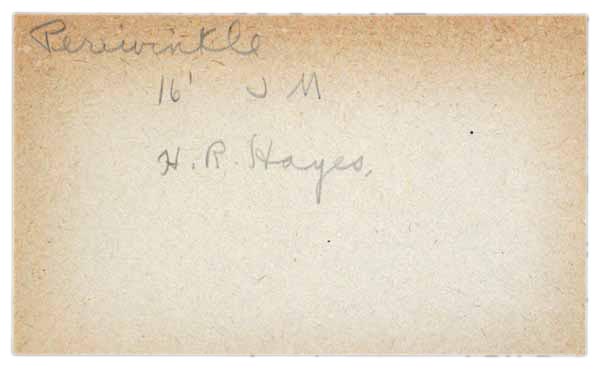 Periwinkle
16' J M
H. R. Hayes,